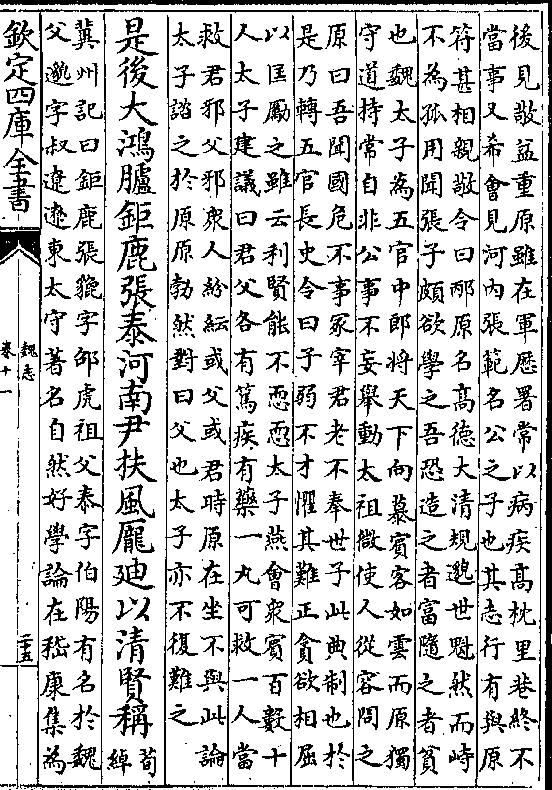 後見敬益重原雖在軍歷署常以病疾高枕里巷終不
當事又希會見河內張範名公之子也其志行有與原
符甚相親敬令曰邴原名高德大清規邈世魁然而峙
不為孤用聞張子頗欲學之吾恐造之者富隨之者貧
也魏太子為五官中郎将天下向慕賓客如雲而原獨
守道持常自非公事不妄舉動太祖微使人從容問之
原曰吾聞國危不事冢宰君老不奉世子此典制也於
是乃轉五官長史令曰子弱不才懼其難正貪欲相屈
以匡勵之雖云利賢能不恧恧太子燕會衆賓百數十
人太子建議曰君父各有篤疾有藥一丸可救一人當
救君邪父邪衆人紛紜或父或君時原在坐不與此論
太子諮之於原原勃然對曰父也太子亦不復難之
是後大鴻臚鉅鹿張泰河南尹扶風龐廸以清賢稱荀綽
冀州記曰鉅鹿張貔字邵虎祖父泰字伯陽有名於魏
父邈字叔遼遼東太守著名自然好學論在嵇康集為
欽定四庫全書
魏志
卷十一
二十五